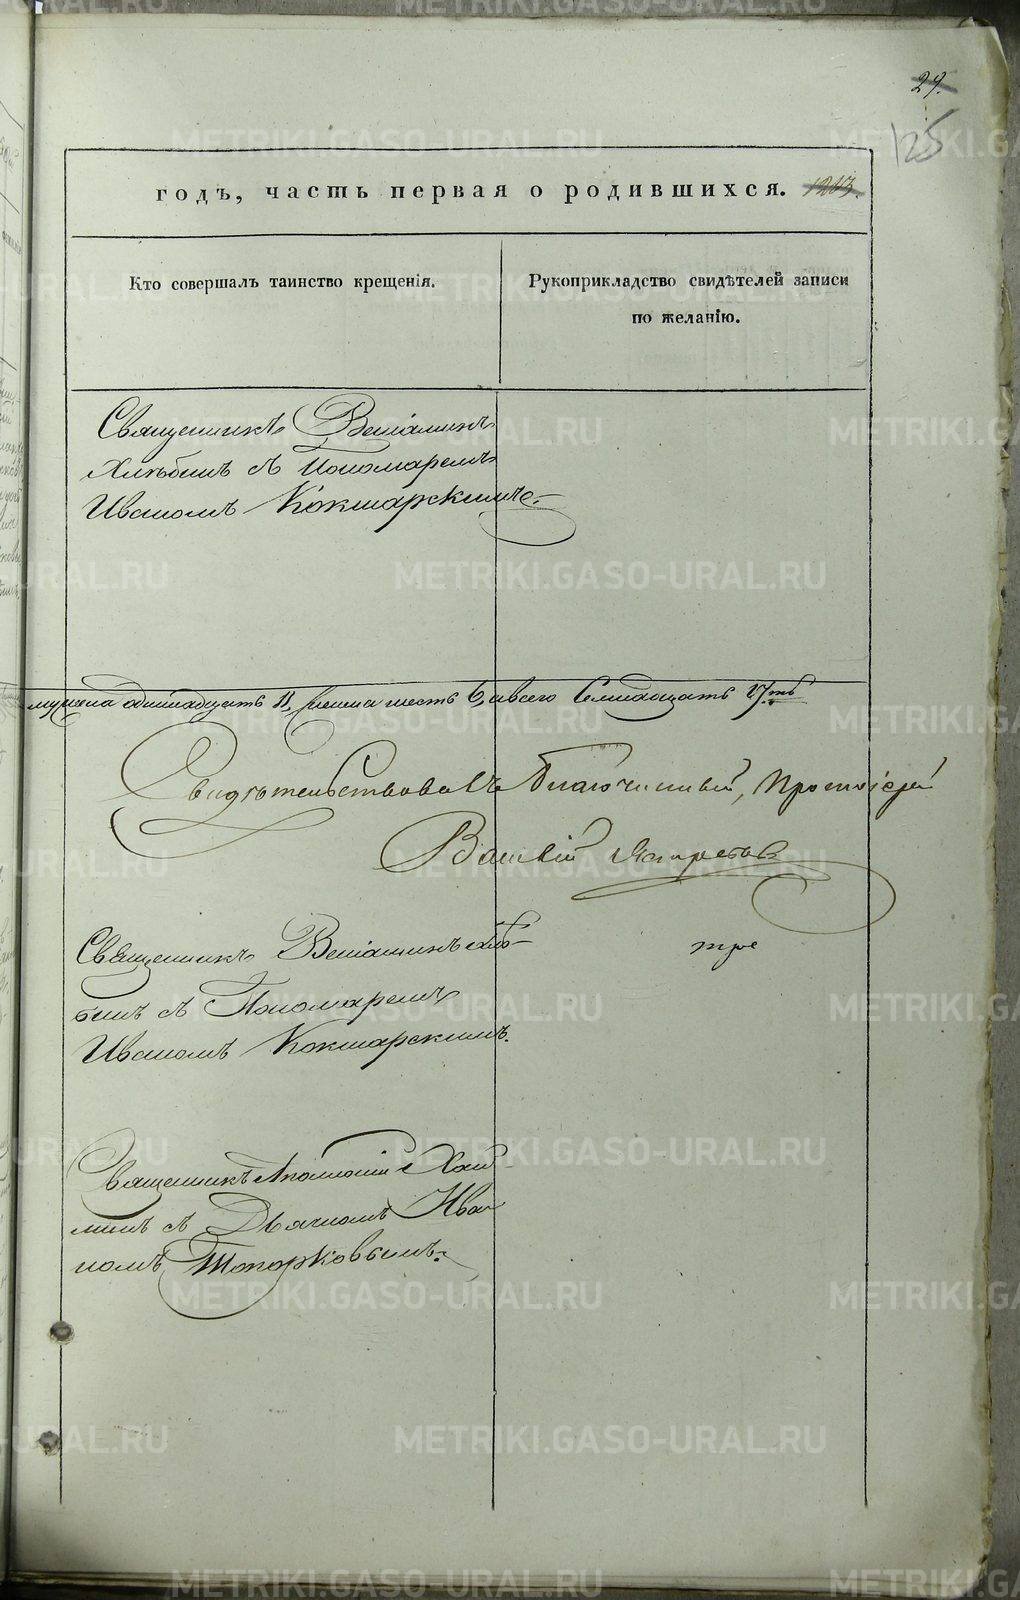 29.
125
годъ, часть первая о родившихся. 1203.
Кто совершалъ таинство крещенія.
Рукоприкладство свидѣтелей записи
по желанію.
Священникъ Веніаминъ
Хлѣбинъ съ Пономаремъ
Иваномъ Кокшарскимъ.
мужеска одиннадцать 11, женска шесть 6, а всего Семнадцать 17.ть
Свидѣтельствовалъ Благочинный, Протоіерей
Василій
Священникъ Веніаминъ Хлѣ-
бинъ съ Пономаремъ
Иваномъ Кокшарскимъ.
тре
Священникъ Аполлоній
съ Дьячкомъ Ива
номъ Топорковымъ.
METRIKI.GASO-URAL.RU